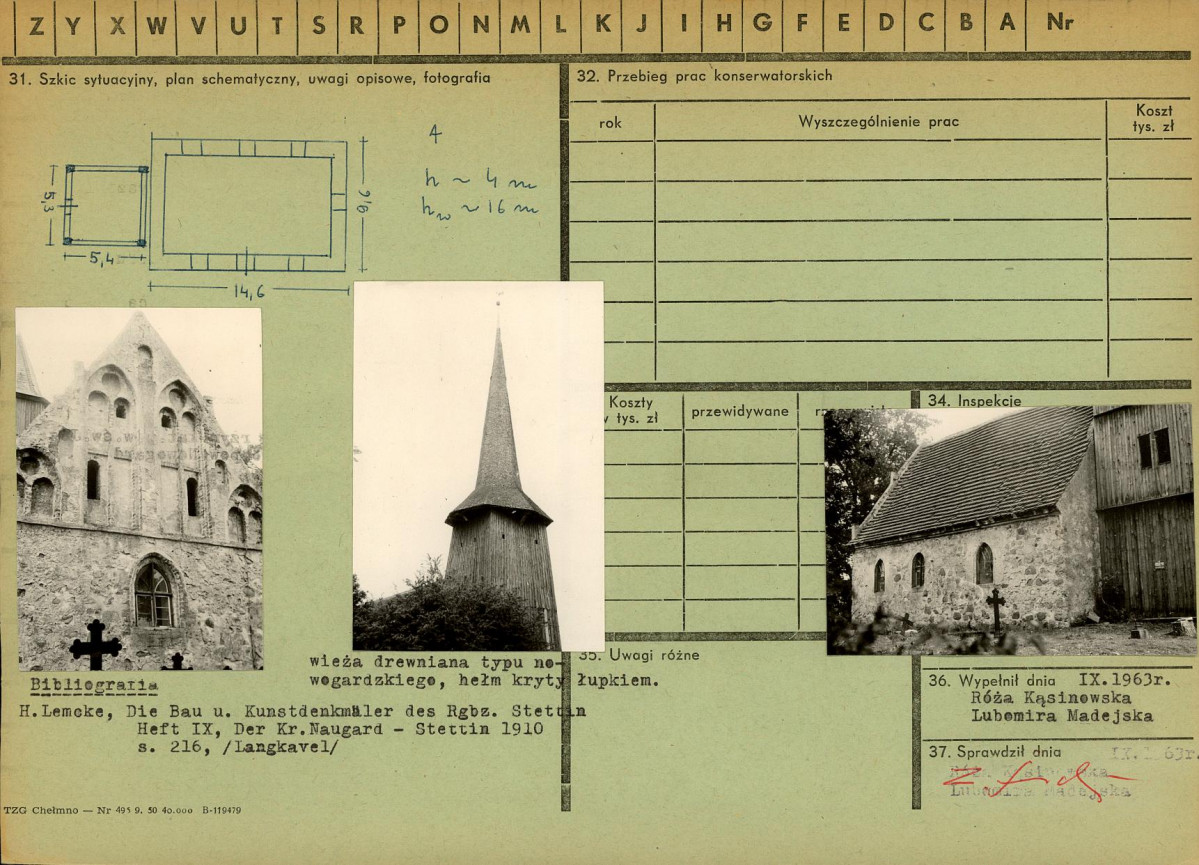 Z Y X W V U T S R P O N M L K J I H G F E D C B A Nr
31. Szkic sytuacyjny, plan schematyczny, uwagi opisowe, fotografia
4
h ~ 4 m
hw ~ 16 m
5,3
5,4
9,8
14,6
wieża drewniana typu no-
wogardzkiego, hełm kryty łupkiem.
Bibliografia
H.Lemcke, Die Bau u. Kunstdenkmäler des Rgbz. Stettin
Heft IX, Der Kr.Naugard - Stettin 1910
s. 216, /Langkavel/
TZG Chełmno — Nr 495 9. 50 40.000 B-119479
32. Przebieg prac konserwatorskich
rok
Wyszczególnienie prac
Koszt
tys. zł
Koszty
w tys. zł
przewidywane
34. Inspekcje
35. Uwagi różne
36. Wypełnił dnia IX.1963r.
Róża Kąsinowska
Lubomira Madejska
37. Sprawdził dnia IX.1963r.
Róża Kąsinowska
Lubomira Madejska